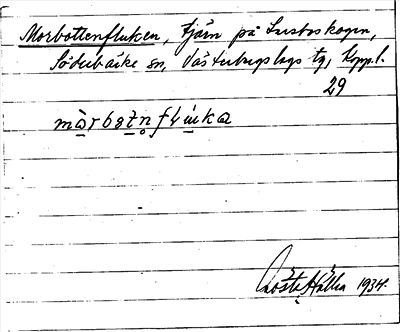 Morbottenfluken, tjärn på Lustaskogen,
Söderbärke sn, Västerbergslags tg, Koppl.
29
mòrbotnflúka
Gösta Hallin 1934.